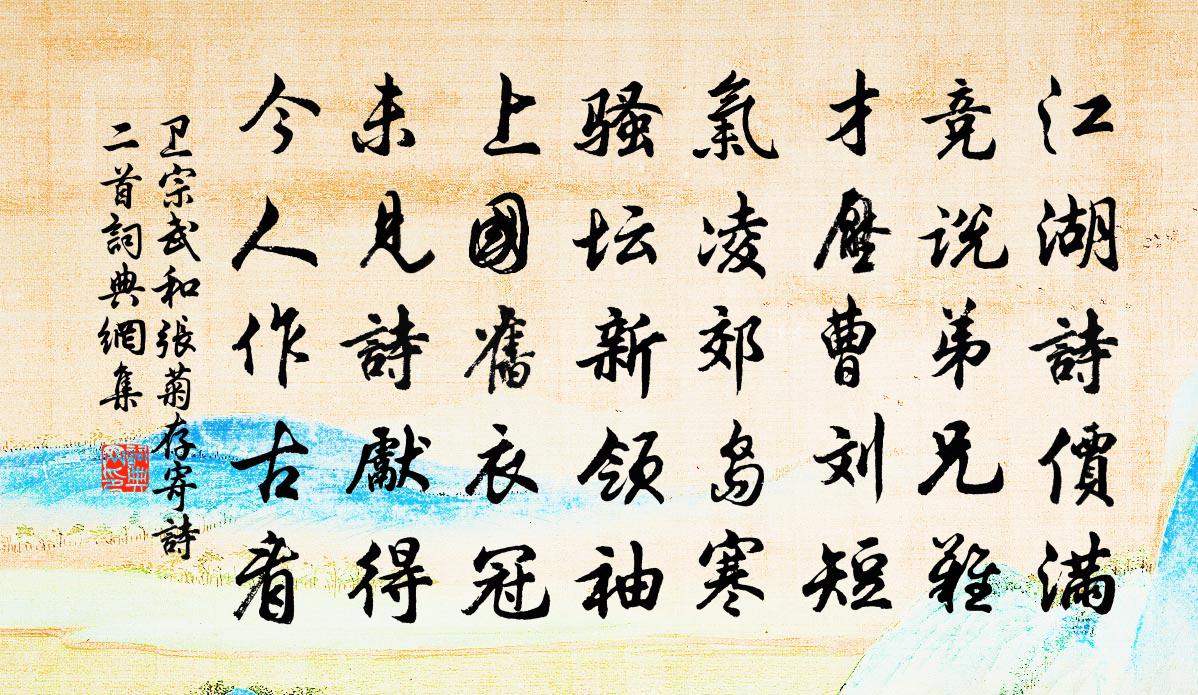 江湖詩價滿
竞说弟兄難
才壓曹刘短
氣凌郊岛寒
骚坛新領袖
上國舊衣冠
未見詩獻得
今人作古看
卫宗武和張菊存寄詩
二首詞典網集